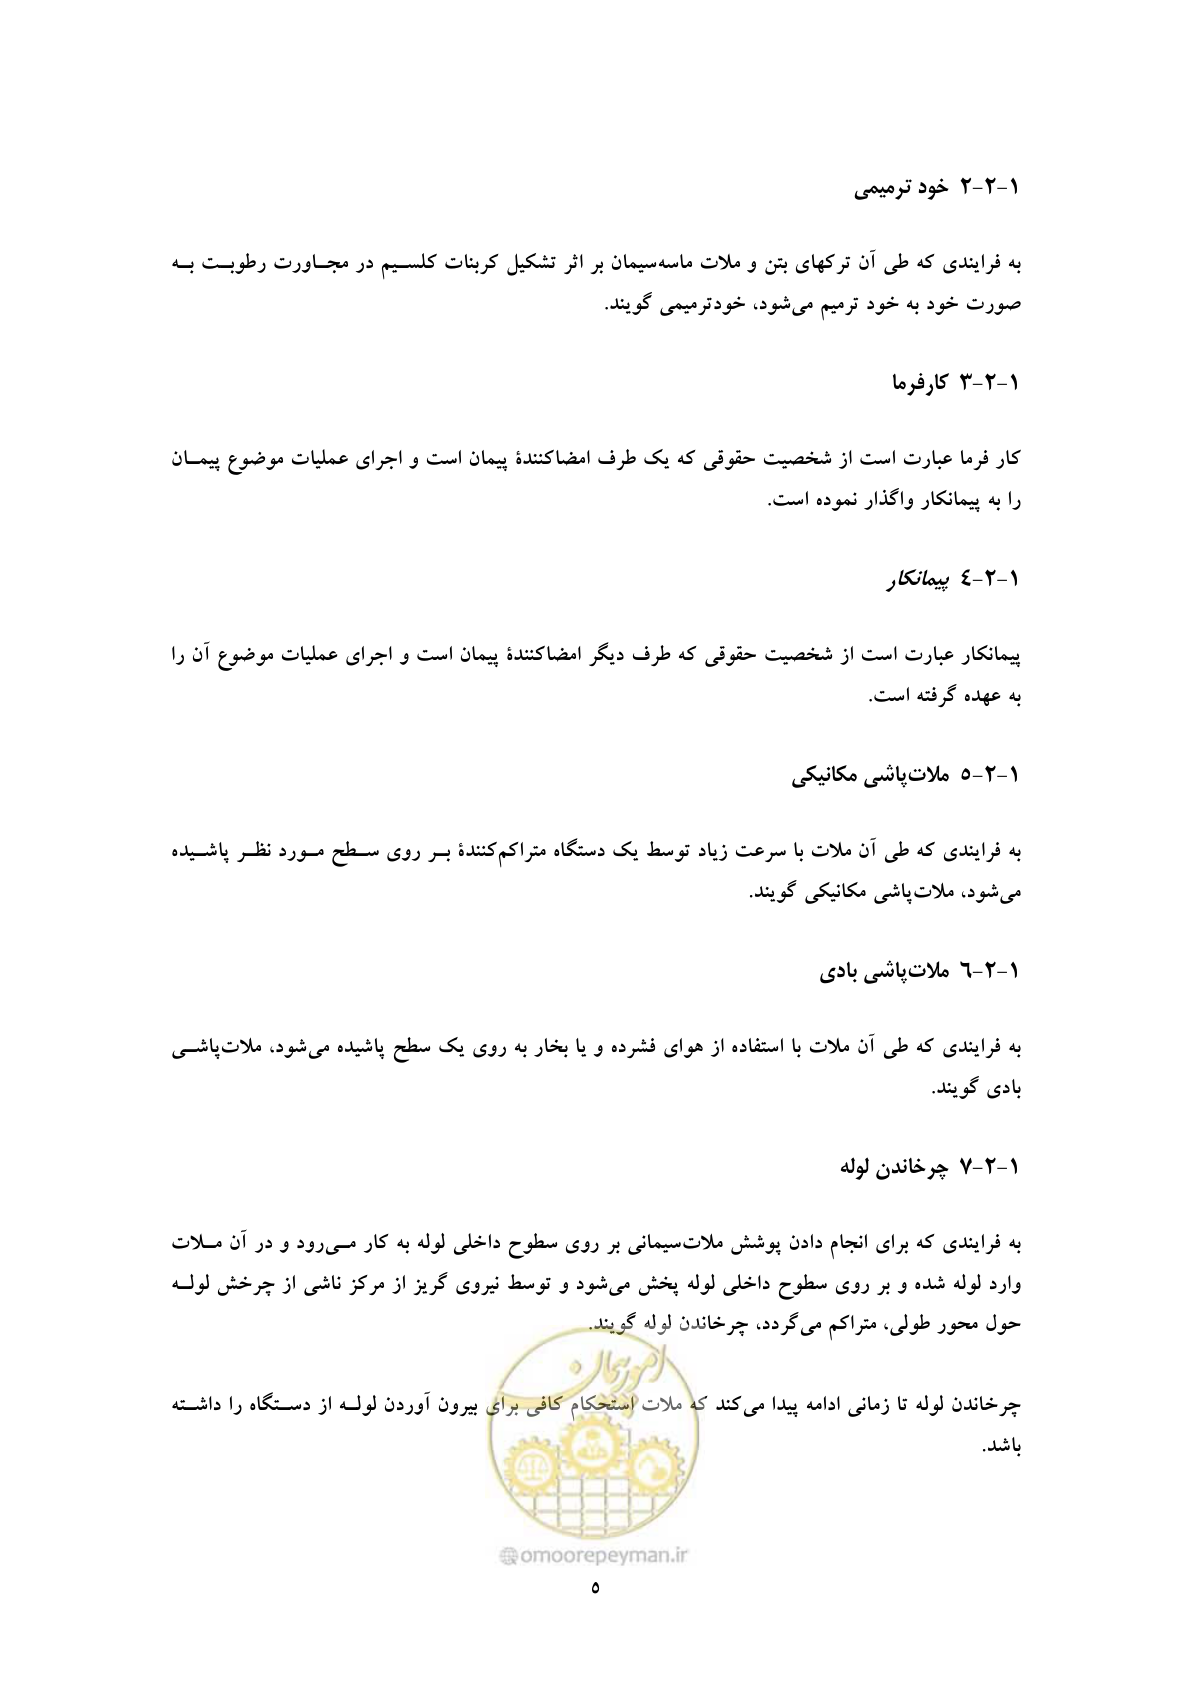 ۱-۲-۲ خود ترمیمی
به فرایندی که طی آن ترکهای بتن و ملات ماسه‌سیمان بر اثر تشکیل کربنات کلسیم در مجاورت رطوبت به
صورت خود به خود ترمیم می‌شود، خودترمیمی گویند.
۱-۲-۳ کارفرما
کار فرما عبارت است از شخصیت حقوقی که یک طرف امضاکنندۀ پیمان است و اجرای عملیات موضوع پیمان
را به پیمانکار واگذار نموده است.
۱-۲-٤ پیمانکار
پیمانکار عبارت است از شخصیت حقوقی که طرف دیگر امضاکنندۀ پیمان است و اجرای عملیات موضوع آن را
به عهده گرفته است.
۱-۲-۵ ملات‌پاشی مکانیکی
به فرایندی که طی آن ملات با سرعت زیاد توسط یک دستگاه متراکم‌کنندۀ بر روی سطح مورد نظر پاشیده
می‌شود، ملات‌پاشی مکانیکی گویند.
۱-۲-٦ ملات‌پاشی بادی
به فرایندی که طی آن ملات با استفاده از هوای فشرده و یا بخار به روی یک سطح پاشیده می‌شود، ملات‌پاشی
بادی گویند.
۱-۲-۷ چرخاندن لوله
به فرایندی که برای انجام دادن پوشش ملات‌سیمانی بر روی سطوح داخلی لوله به کار می‌رود و در آن ملات
وارد لوله شده و بر روی سطوح داخلی لوله پخش می‌شود و توسط نیروی گریز از مرکز ناشی از چرخش لوله
حول محور طولی، متراکم می‌گردد، چرخاندن لوله گویند.
امور پیمان
چرخاندن لوله تا زمانی ادامه پیدا می‌کند که ملات استحکام کافی برای بیرون آوردن لوله از دستگاه را داشته
باشد.
@omoorepeyman.ir
۵